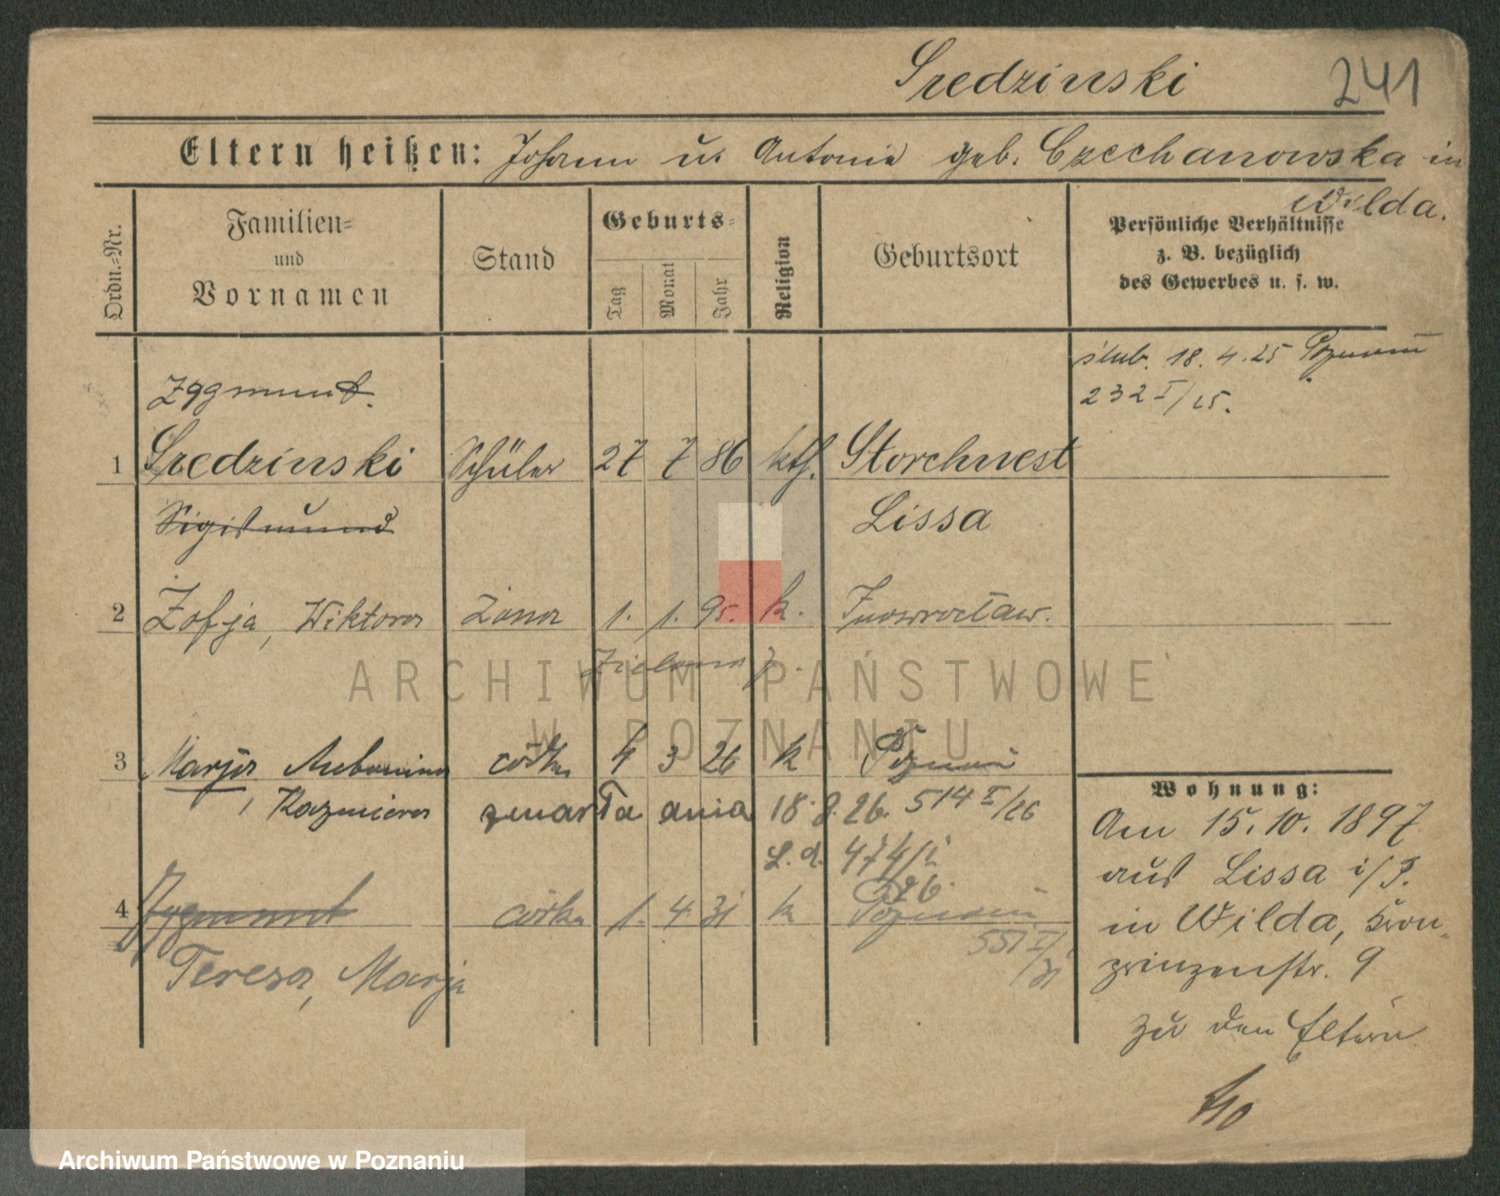 Sredzinski 241
Eltern heißen: Johann u. Antonie geb. Czechanowska in
Wilda.
Ordn.=Nr.
Familien=
und
Vornamen
Stand
Geburts=
Tag Monat Jahr
Religion
Geburtsort
Persönliche Verhältnisse
z. B. bezüglich
des Gewerbes u. s. w.
ślub. 18. 4. 25 Poznań
232 I/25.
Zygmunt.
1 Sredzinski Schüler 27 7 86 kth. Storchnest
Sigismund Lissa
2 Zofja, Wiktorja żona 1. 1. 95. k. Inowrocław.
ARCHIWUM PAŃSTWOWE
W POZNANIU
3 Marja Antonina córka 4 3 26 k Poznań
, Kazmiera zmarła dnia 18. 8. 26. 514 I/26
L. d. 474/I
26.
4 Zygmunt córka 1. 4 31 k Poznań
551 I/31
Teresa, Marja
Wohnung:
Am 15. 10. 1897
aus Lissa i/P.
in Wilda, Kron-
prinzenstr. 9
zu den Eltern
Archiwum Państwowe w Poznaniu